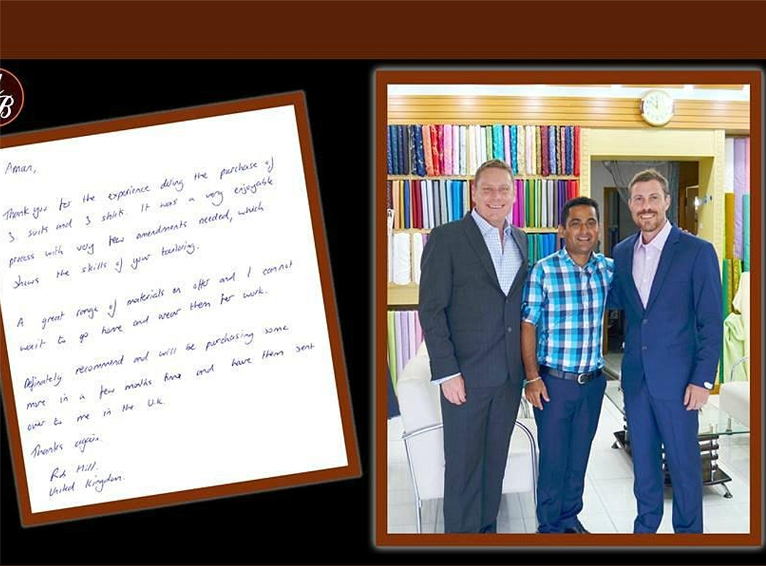 B
Aman,
Thank you for the experience during the purchase of
3 suits and 3 shirts. It was a very enjoyable
process with very few amendments needed, which
shows the skills of your tailoring.
A great range of materials on offer and I cannot
wait to go home and wear them for work.
Definately recommend and will be purchasing some
more in a few months time and have them sent
over to me in the U.K.
Thanks again.
Rob Hill.
United Kingdom.